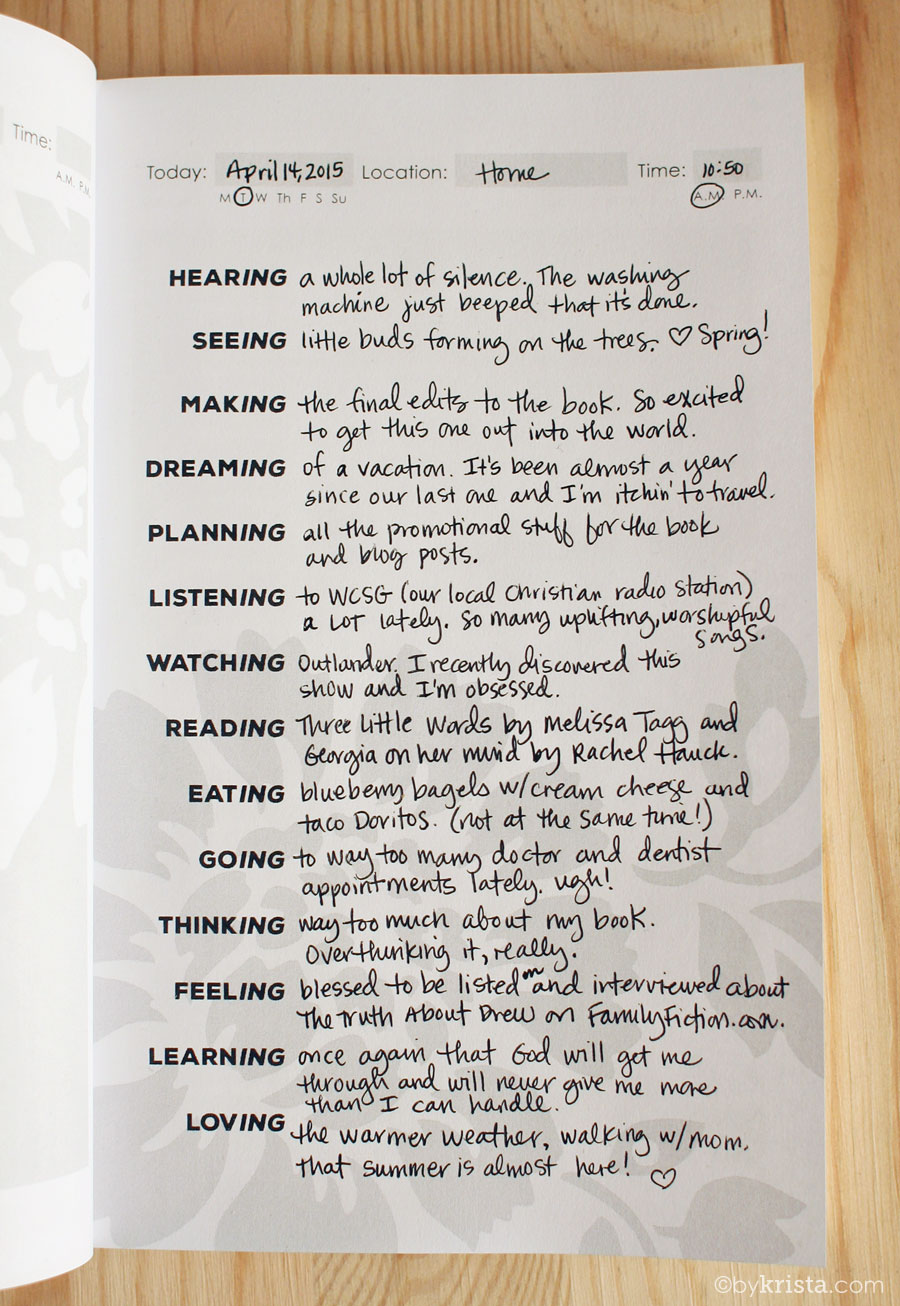 Time:
A.M. P.M.
Today: April 14, 2015 Location: Home Time: 10:50
M T W Th F S Su A.M. P.M.
HEARING a whole lot of silence. The washing
machine just beeped that it's done.
SEEING little buds forming on the trees. ♡ Spring!
MAKING the final edits to the book. So excited
to get this one out into the world.
DREAMING of a vacation. It's been almost a year
since our last one and I'm itchin' to travel.
PLANNING all the promotional stuff for the book
and blog posts.
LISTENING to WCSG (our local Christian radio station)
a LOT lately. So many uplifting, worshipful
songs.
WATCHING Outlander. I recently discovered this
show and I'm obsessed.
READING Three Little Words by Melissa Tagg and
Georgia on her mind by Rachel Hauck.
EATING blueberry bagels w/cream cheese and
taco Doritos. (not at the same time!)
GOING to way too many doctor and dentist
appointments lately. ugh!
THINKING way too much about my book.
Overthinking it, really.
FEELING blessed to be listed on and interviewed about
The Truth About Drew on FamilyFiction.com.
LEARNING once again that God will get me
through and will never give me more
than I can handle.
LOVING the warmer weather, walking w/mom,
that summer is almost here! ♡
©bykrista.com